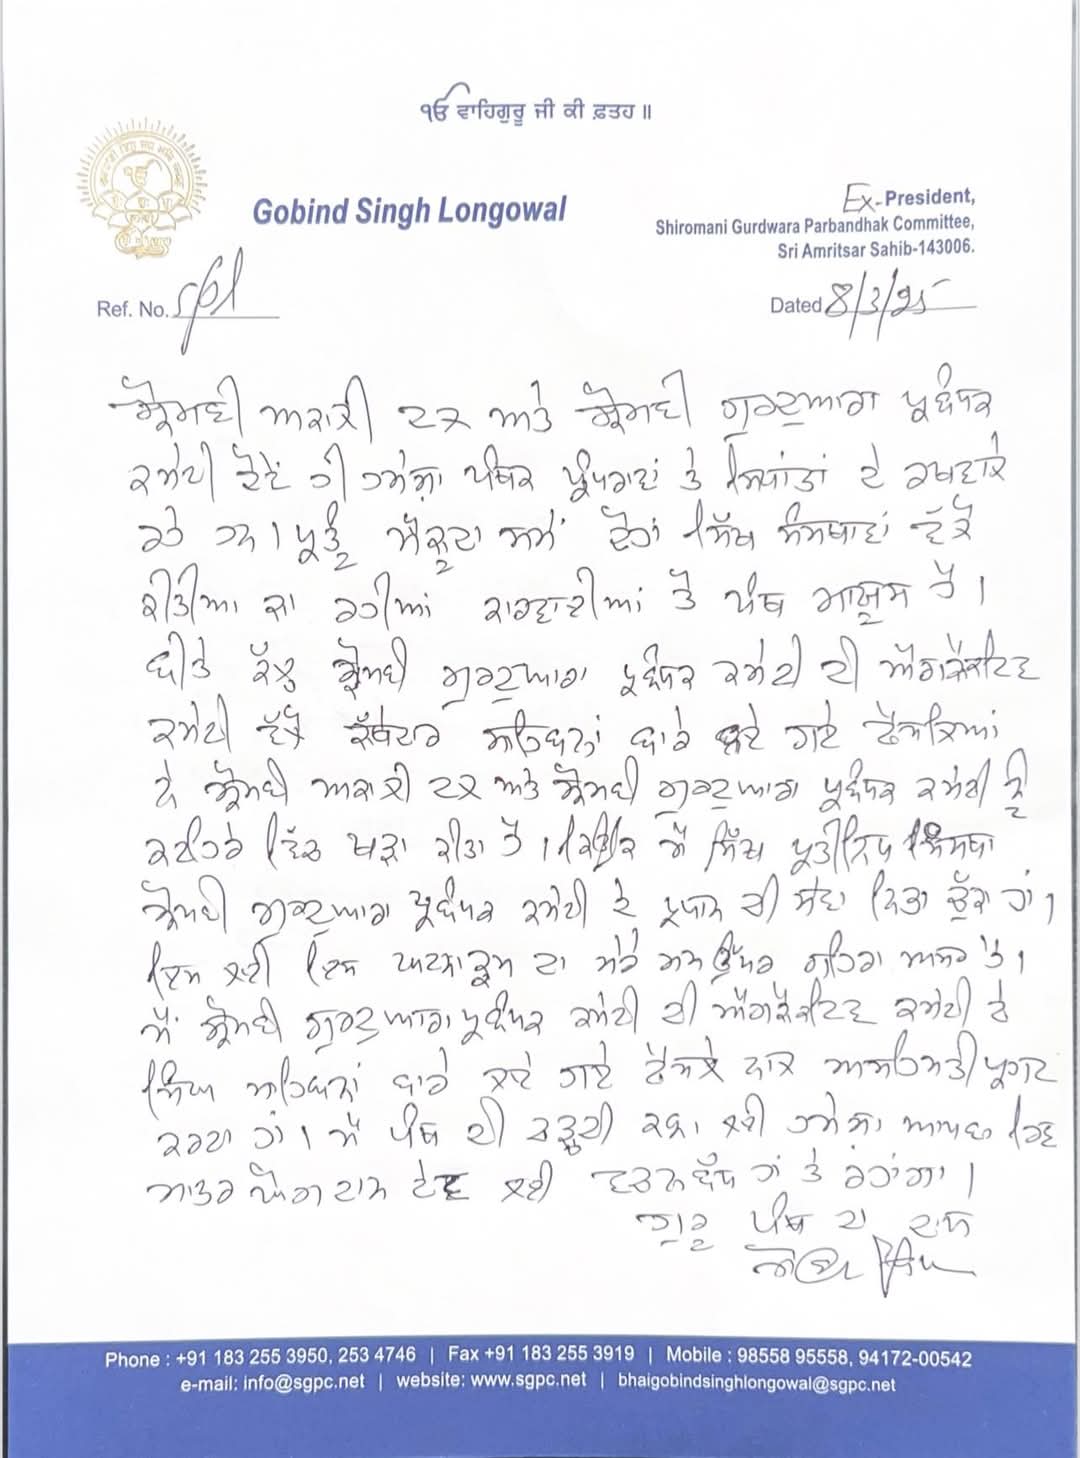 ੴ ਵਾਹਿਗੁਰੂ ਜੀ ਕੀ ਫ਼ਤਹ ॥
Gobind Singh Longowal
Ex-President,
Shiromani Gurdwara Parbandhak Committee,
Sri Amritsar Sahib-143006.
Ref. No. Spl
Dated 8/3/25
ਸ਼੍ਰੋਮਣੀ ਅਕਾਲੀ ਦਲ ਅਤੇ ਸ਼੍ਰੋਮਣੀ ਗੁਰਦੁਆਰਾ ਪ੍ਰਬੰਧਕ
ਕਮੇਟੀ ਦੋਨੋਂ ਹੀ ਹਮੇਸ਼ਾ ਪੰਥਕ ਪ੍ਰੰਪਰਾਵਾਂ ਤੇ ਸਿਧਾਂਤਾਂ ਦੇ ਰਖਵਾਲੇ
ਰਹੇ ਹਨ। ਪ੍ਰੰਤੂ ਮੌਜੂਦਾ ਸਮੇਂ ਦੋਹਾਂ ਸਿੱਖ ਸੰਸਥਾਵਾਂ ਵੱਲੋਂ
ਕੀਤੀਆ ਜਾ ਰਹੀਆਂ ਕਾਰਵਾਈਆਂ ਤੋਂ ਪੰਥ ਮਾਯੂਸ ਹੈ।
ਬੀਤੇ ਕੱਲ੍ਹ ਸ਼੍ਰੋਮਣੀ ਗੁਰਦੁਆਰਾ ਪ੍ਰਬੰਧਕ ਕਮੇਟੀ ਦੀ ਐਗਜੈਕਟਿਵ
ਕਮੇਟੀ ਵੱਲੋਂ ਜੱਥੇਦਾਰ ਸਾਹਿਬਾਨਾਂ ਬਾਰੇ ਲਏ ਗਏ ਫੈਸਲਿਆਂ
ਨੇ ਸ਼੍ਰੋਮਣੀ ਅਕਾਲੀ ਦਲ ਅਤੇ ਸ਼੍ਰੋਮਣੀ ਗੁਰਦੁਆਰਾ ਪ੍ਰਬੰਧਕ ਕਮੇਟੀ ਨੂੰ
ਕਟਹਿਰੇ ਵਿੱਚ ਖੜਾ ਕੀਤਾ ਹੈ। ਕਿਉਂਕਿ ਮੈਂ ਸਿੱਖ ਪ੍ਰਤੀਨਿਧ ਸੰਸਥਾ
ਸ਼੍ਰੋਮਣੀ ਗੁਰਦੁਆਰਾ ਪ੍ਰਬੰਧਕ ਕਮੇਟੀ ਦੇ ਪ੍ਰਧਾਨ ਦੀ ਸੇਵਾ ਨਿਭਾ ਚੁੱਕਾ ਹਾਂ।
ਇਸ ਲਈ ਇਸ ਘਟਨਾਕ੍ਰਮ ਦਾ ਮੇਰੇ ਮਨ ਉੱਪਰ ਗਹਿਰਾ ਅਸਰ ਹੈ।
ਮੈਂ ਸ਼੍ਰੋਮਣੀ ਗੁਰਦੁਆਰਾ ਪ੍ਰਬੰਧਕ ਕਮੇਟੀ ਦੀ ਐਗਜੈਕਟਿਵ ਕਮੇਟੀ ਦੇ
ਸਿੰਘ ਸਾਹਿਬਾਨਾਂ ਬਾਰੇ ਲਏ ਗਏ ਫੈਸਲੇ ਨਾਲ ਅਸਹਿਮਤੀ ਪ੍ਰਗਟ
ਕਰਦਾ ਹਾਂ। ਮੈਂ ਪੰਥ ਦੀ ਚੜ੍ਹਦੀ ਕਲਾ ਲਈ ਹਮੇਸ਼ਾ ਆਪਣਾ ਤਿਲ
ਮਾਤਰ ਯੋਗਦਾਨ ਦੇਣ ਲਈ ਵਚਨਬੱਧ ਹਾਂ ਤੇ ਰਹਾਂਗਾ।
ਗੁਰੂ ਪੰਥ ਦਾ ਦਾਸ
Phone : +91 183 255 3950, 253 4746 | Fax +91 183 255 3919 | Mobile : 98558 95558, 94172-00542
e-mail: info@sgpc.net | website: www.sgpc.net | bhaigobindsinghlongowal@sgpc.net